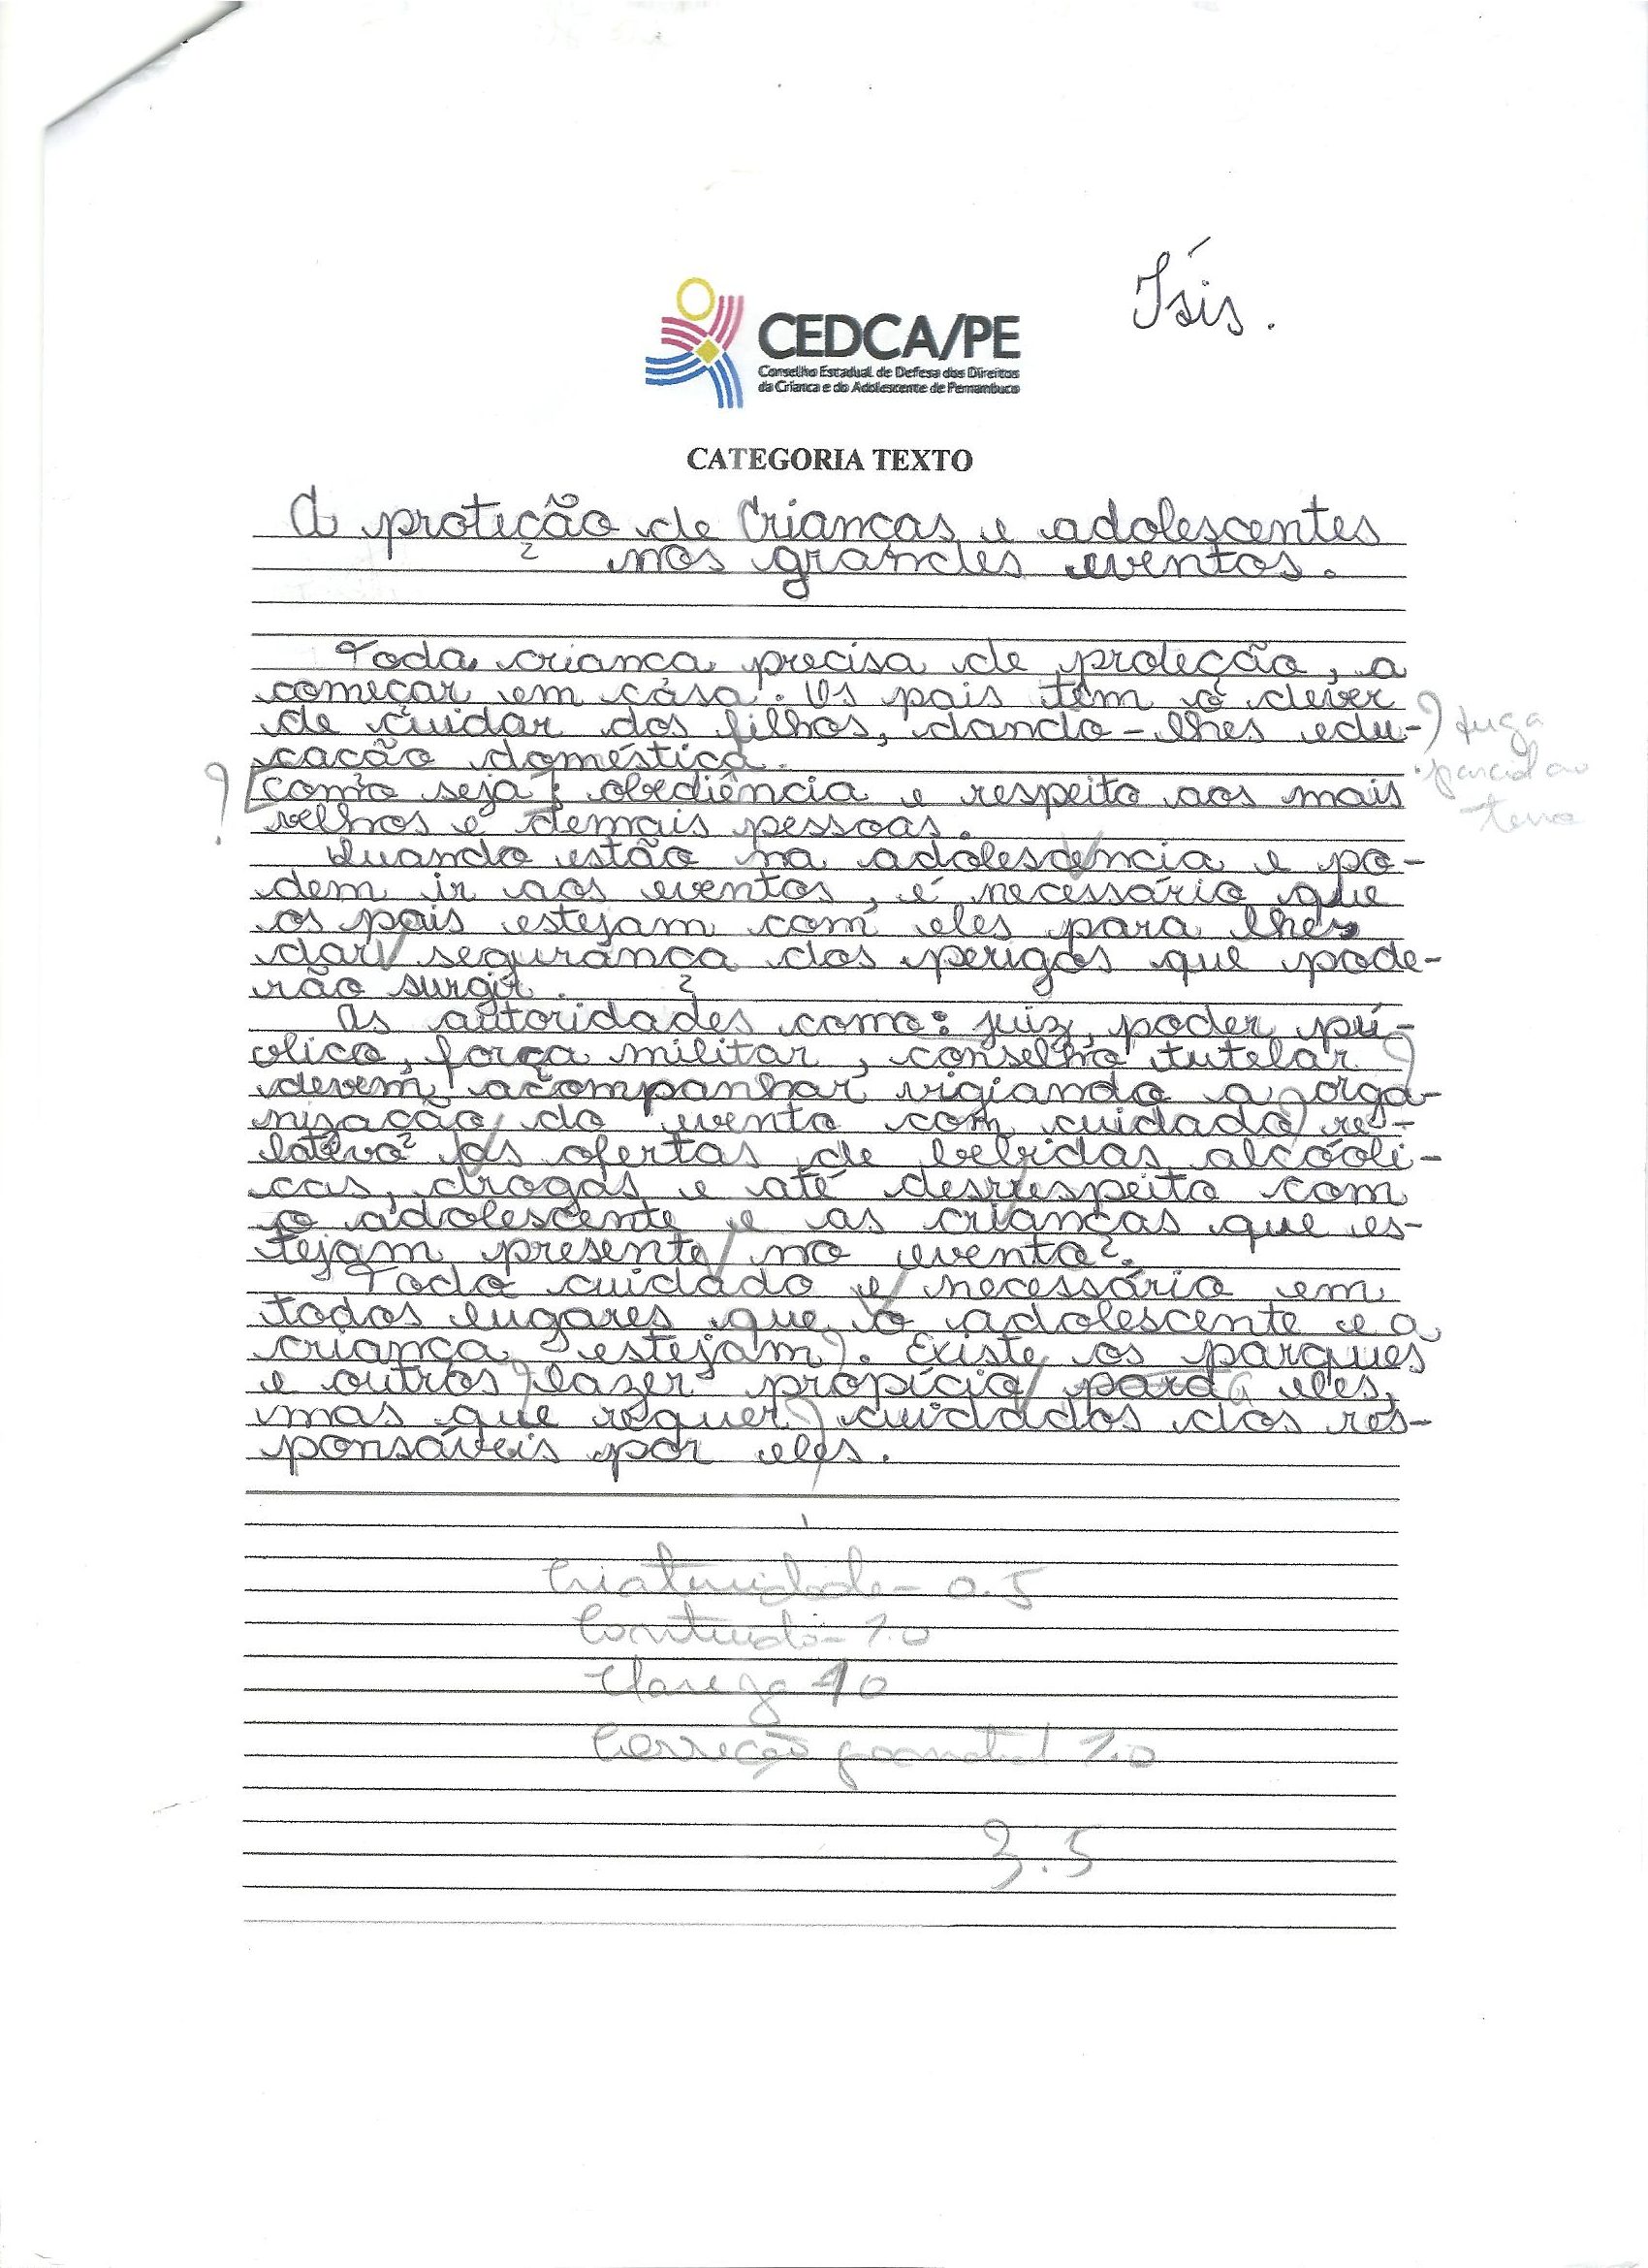 Ísis.
CEDCA/PE
Conselho Estadual de Defesa dos Direitos
da Criança e do Adolescente de Pernambuco
CATEGORIA TEXTO
A proteção de Crianças e adolescentes
nos grandes eventos.
Toda criança precisa de proteção, a
começar em casa. Os pais têm o dever
de cuidar dos filhos, dando-lhes edu-
cação doméstica.
fuga
parcial ao
tema
? [como seja: obediência e respeito aos mais
velhos e demais pessoas.
Quando estão na adolescência e po-
dem ir aos eventos, é necessário que
os pais estejam com eles para lhes
dar segurança dos perigos que pode-
rão surgir.
As autoridades como: juiz, poder pú-
blico, força militar, conselho tutelar
devem acompanhar vigiando a orga-
nização do evento com cuidado re-
lativo as ofertas de bebidas alcóoli-
cas, drogas e até desrrespeito com
o adolescente e as crianças que es-
tejam presente no evento.
Todo cuidado e necessário em
todos lugares que o adolescente e a
criança estejam. Existe os parques
e outros lazer propício para eles,
mas que requer cuidados dos res-
ponsáveis por eles.
Criatividade - 0.5
Conteúdo - 1.0
Clareza 10
Correção gramatical 1.0
3.5